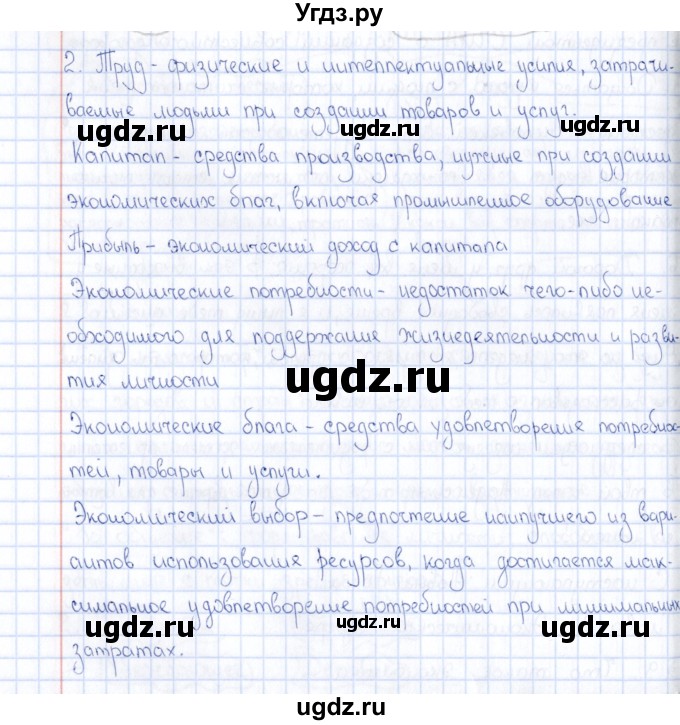 Угдз.ру
2. Труд - физические и интеллектуальные усилия, затрачи-
ваемые людьми при создании товаров и услуг.
ugdz.ru ugdz.ru ugdz.ru
Капитал - средства производства, нужные при создании
экономических благ, включая промышленное оборудование
Прибыль - экономический доход с капитала
Экономические потребности - недостаток чего-либо не-
обходимого для поддержания жизнедеятельности и разви-
тия личности
ugdz.ru
Экономические блага - средства удовлетворения потребнос-
тей, товары и услуги.
Экономический выбор - предпочтение наилучшего из вари-
антов использования ресурсов, когда достигается мак-
симальное удовлетворение потребностей при минимальных
ugdz.ru ugdz.ru ugdz.ru
затратах.
ugdz.ru